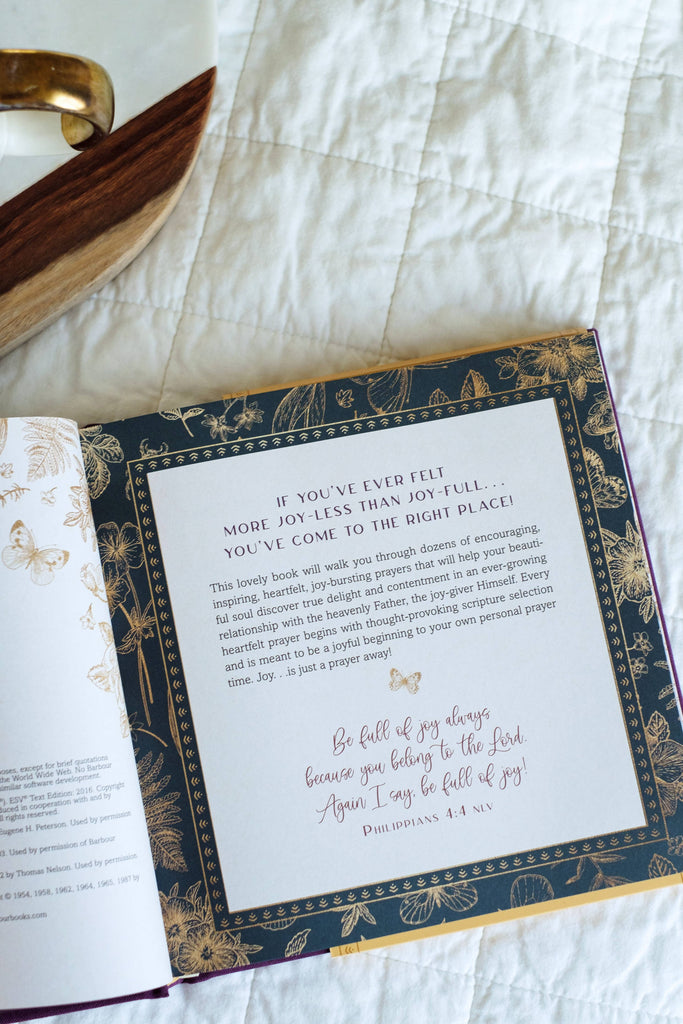 oses, except for brief quotations
the World Wide Web. No Barbour
similar software development.
®). ESV® Text Edition: 2016. Copyright
duced in cooperation with and by
ll rights reserved.
Eugene H. Peterson. Used by permission
93. Used by permission of Barbour
2 by Thomas Nelson. Used by permission
t © 1954, 1958, 1962, 1964, 1965, 1987 by
ourbooks.com
IF YOU'VE EVER FELT
MORE JOY-LESS THAN JOY-FULL...
YOU'VE COME TO THE RIGHT PLACE!
This lovely book will walk you through dozens of encouraging,
inspiring, heartfelt, joy-bursting prayers that will help your beauti-
ful soul discover true delight and contentment in an ever-growing
relationship with the heavenly Father, the joy-giver Himself. Every
heartfelt prayer begins with thought-provoking scripture selection
and is meant to be a joyful beginning to your own personal prayer
time. Joy. . .is just a prayer away!
Be full of joy always
because you belong to the Lord.
Again I say, be full of joy!
PHILIPPIANS 4:4 NLV